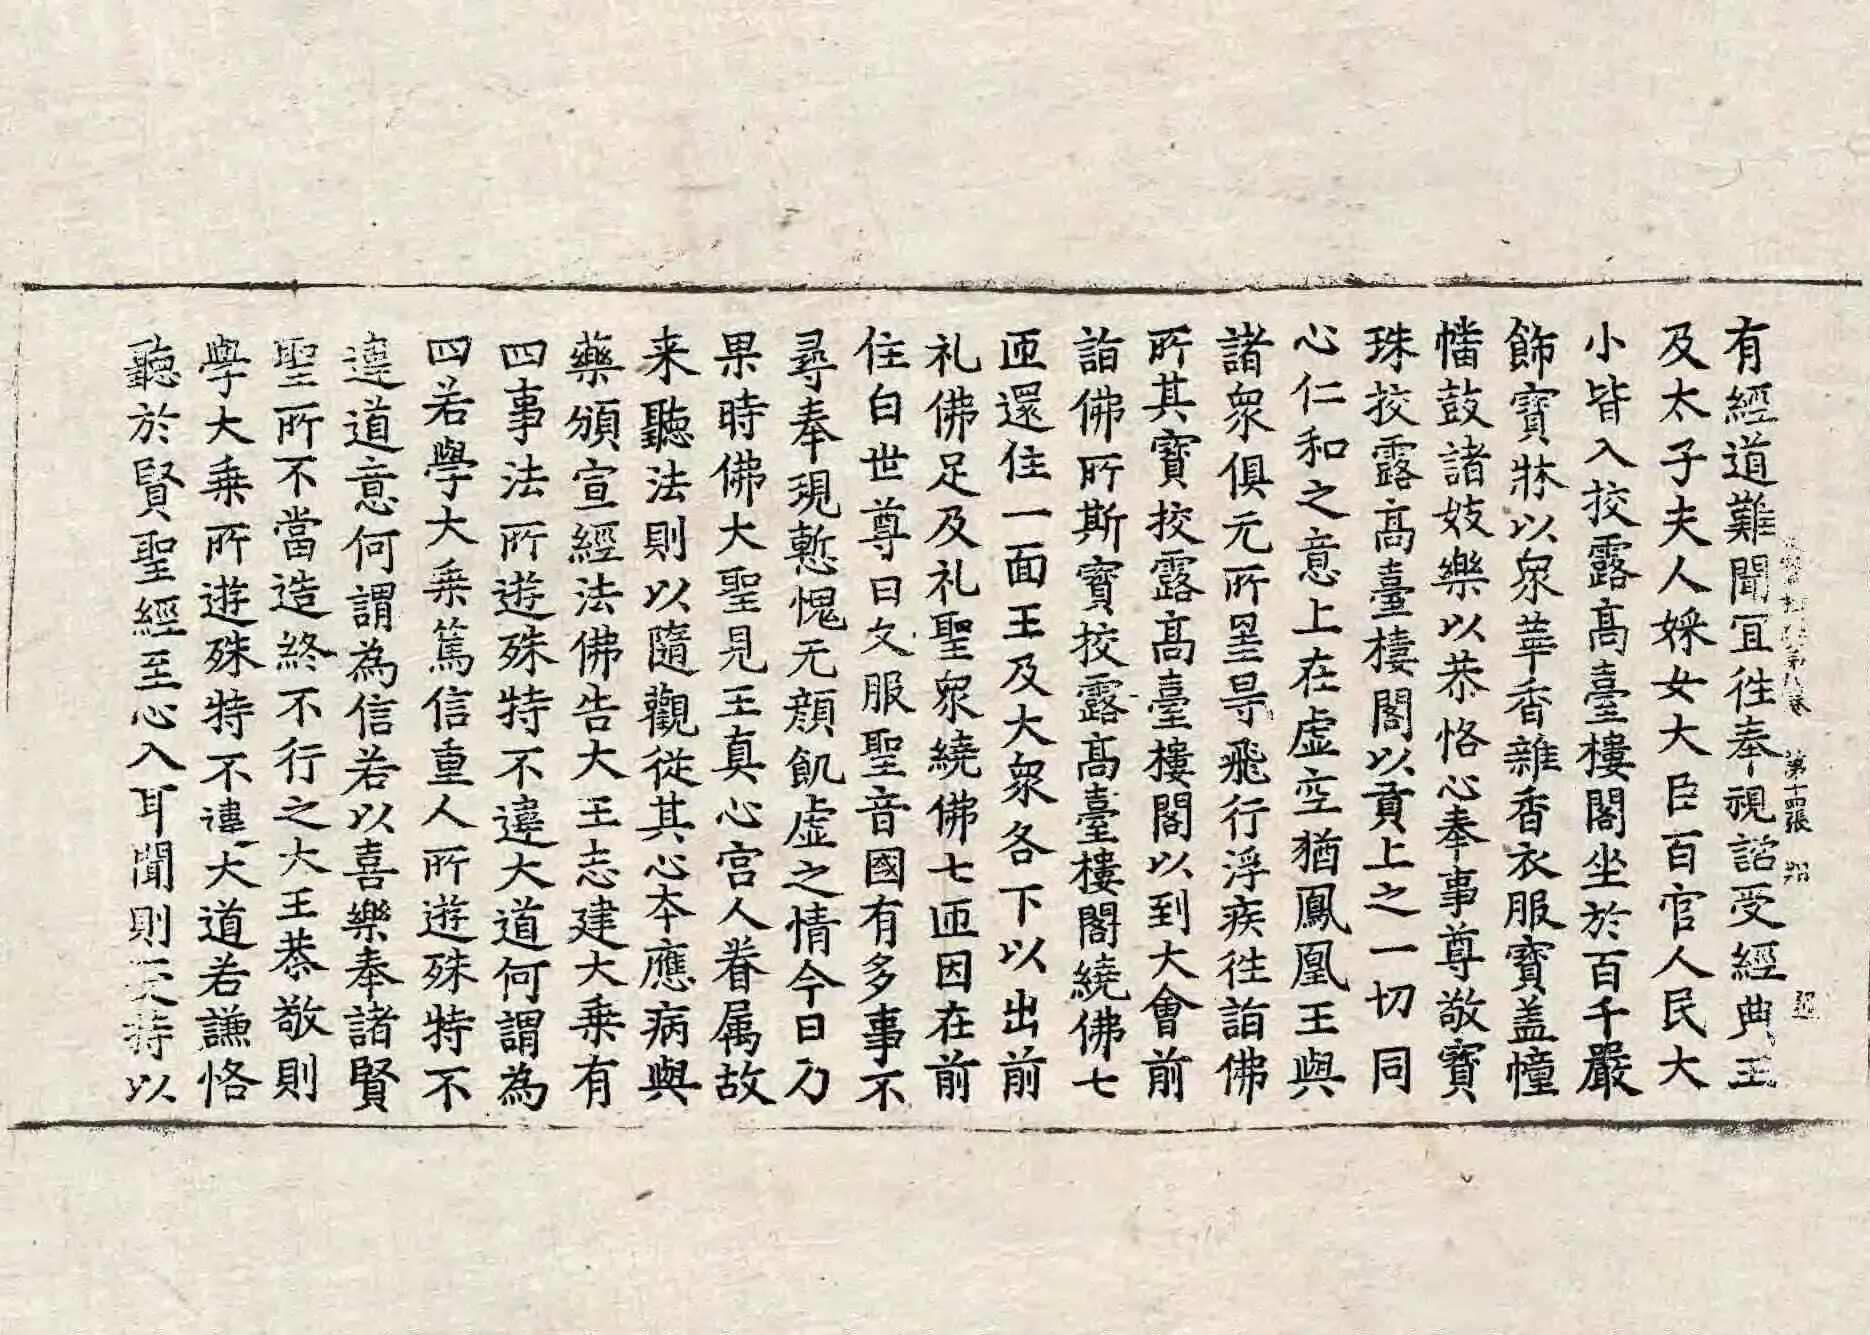 第八卷 第十四張
有經道難聞冝徃奉視諮受經典王
及太子夫人婇女大臣百官人民大
小皆入挍露髙臺樓閣坐於百千嚴
飾寶牀以衆華香雜香衣服寶盖幢
幡鼓諸妓樂以恭恪心奉事尊敬寶
珠挍露髙臺樓閣以貢上之一切同
心仁和之意上在虛空猶鳳凰王與
諸衆俱元所罣㝵飛行浮疾徃詣佛
所其寶挍露髙臺樓閣以到大會前
詣佛所斯寶挍露髙臺樓閣繞佛七
匝還住一面王及大衆各下以出前
礼佛足及礼聖衆繞佛七匝因在前
住白世尊曰久服聖音國有多事不
尋奉現慙愧无顔飢虛之情今日乃
果時佛大聖見王真心宫人眷属故
来聽法則以隨觀従其心夲應病與
藥頒宣經法佛告大王志建大乗有
四事法所遊殊特不違大道何謂為
四若學大乗篤信重人所遊殊特不
違道意何謂為信若以喜樂奉諸賢
聖所不當造終不行之大王恭敬則
學大乗所遊殊特不違大道若謙恪
聽於賢聖經至心入耳聞則受持以